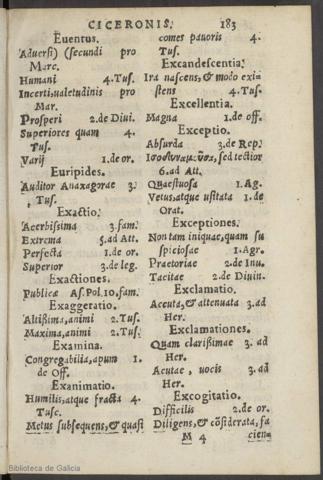 CICERONIS. 183
Euentus.
Aduersi) (secundi pro
Marc.
Humani 4. Tus.
Incerti, ualetudinis pro
Mar.
Prosperi 2. de Diui.
Superiores quam 4.
Tus.
Varij 1. de or.
Euripides.
Auditor Anaxagorae 3.
Tus.
Exactio.
Acerbissima 3. fam.
Extrema 5. ad Att.
Perfecta 1. de or.
Superior 3. de leg.
Exactiones.
Publicae As. Pol. 10. fam.
Exaggeratio.
Altissima, animi 2. Tus.
Maxima, animi 2. Tus.
Examina.
Congregabilia, apum 1.
de Off.
Exanimatio.
Humilis, atque fracta 4.
Tusc.
Metus subsequens, & quasi
comes pauoris 4.
Tus.
Excandescentia.
Ira nascens, & modo exi=
stens 4. Tus.
Excellentia.
Magna 1. de off.
Exceptio.
Absurda 3. de Rep.
sed lectior
6. ad Att.
Quaestuosa 1. Ag.
Vetus, atque usitata 1. de
Orat.
Exceptiones.
Non tam iniquae, quam su
spiciosae 1. Agr.
Praetoriae 2. de Inu.
Tacitae 2. de Diuin.
Exclamatio.
Acuta, & attenuata 3. ad
Her.
Exclamationes.
Quam clarissimae 3. ad
Her.
Acutae, uocis 3. ad
Her.
Excogitatio.
Difficilis 2. de or.
Diligens, & cõsiderata, fa
M 4 ciens
Biblioteca de Galicia